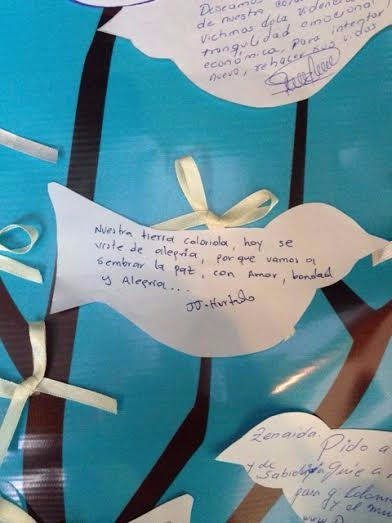 Deseamos
de nuestro
victimas de la violencia
tranquilidad emocional
económica, para intentar
nuevo, rehacer sus vidas.
Nuestra tierra colorida, hoy se
viste de alegría, por que vamos a
sembrar la paz, con Amor, bondad
y Alegría...
JJ. Hurtado
Zenaida.
Pido a
y de Sabiduría
guie a
para q
y el mu